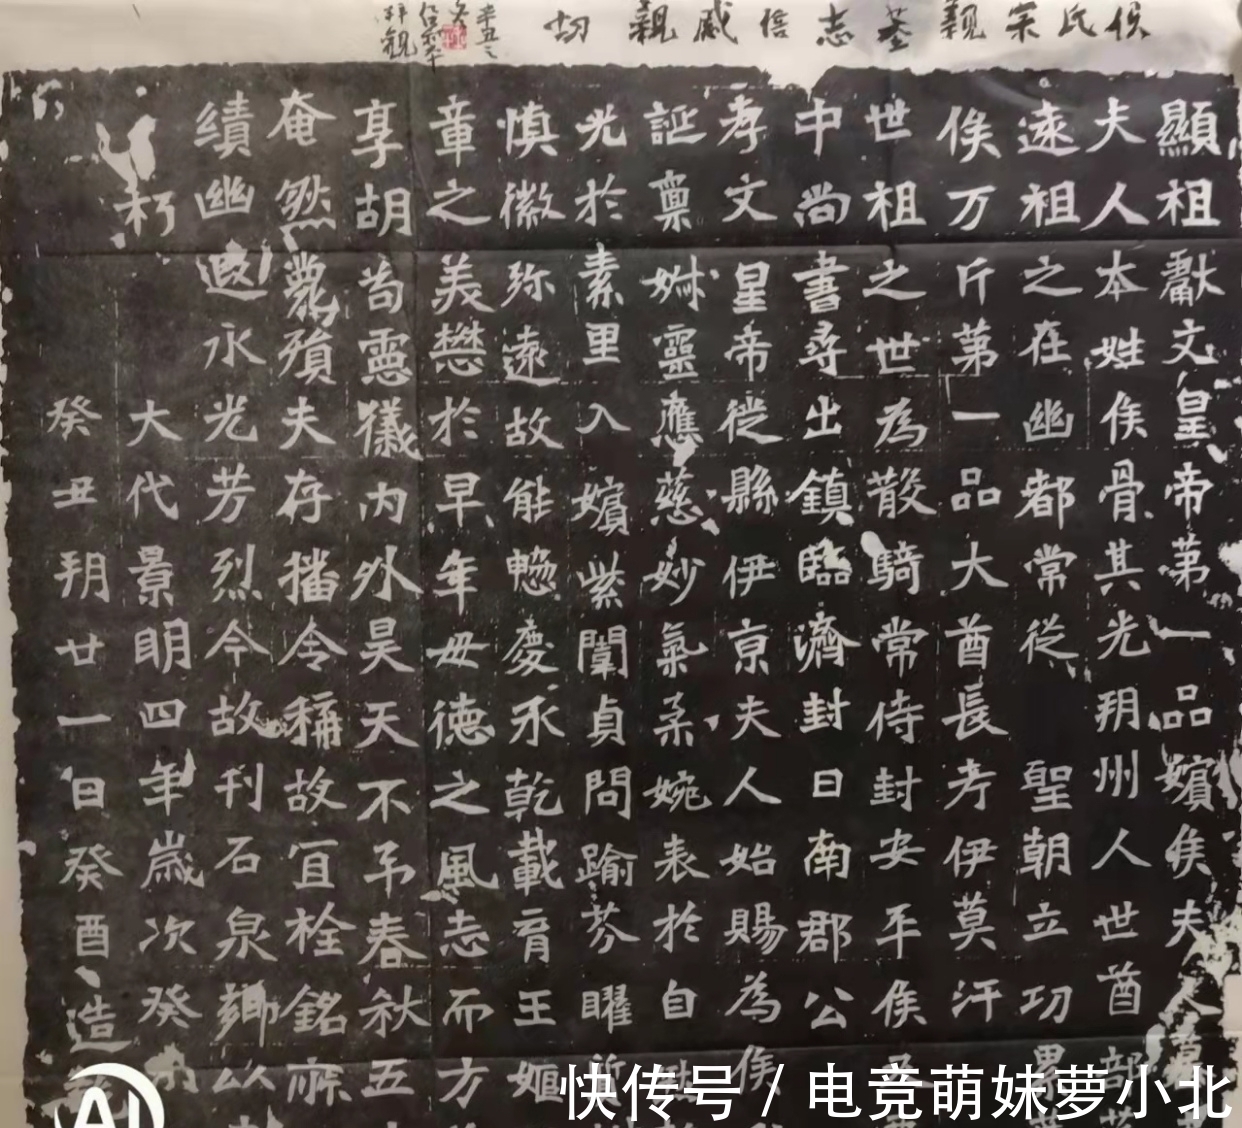 侯氏宗親墓志信感親切
顯祖獻文皇帝第一品嬪侯夫人
夫人本姓侯骨其光玥州人世酋部
遠祖之在幽都常従 聖朝立㓛
俟万斤第一品大酋長考伊莫汗
世祖之世為散騎常侍封安平侯
中尚書尋出鎮臨濟封日南郡公
孝文皇帝従縣伊京夫人始賜為侯
誕稟姊靈應慈妙氣柔婉表於自
光於素里入嬪紫闈貞問踰芬曜
慎徽弥遠故能懃慶承乾載育王姬
章之美懋於早年毋德之風志而方
享胡耇憲儀内外昊天不弔春秋五
奄然薨殞夫存播令稱故宜銓銘
績幽遐永光芳烈今故刊石泉鄉以
朽 大代景明四年歲次癸
癸丑玥廿一日癸酉造
AI
快传号 / 电竞萌妹萝小北